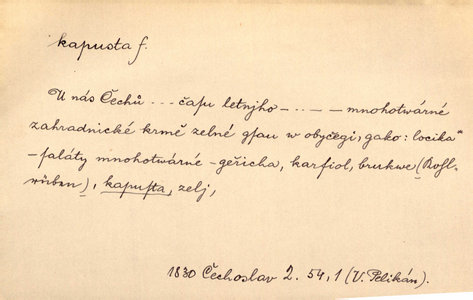 kapusta f.
U nás Čechů ... čaſu letnjho - .. - - mnohotwárné
zahradnické krmě zelné gſau w obyčegi, gako: locika"
- ſaláty mnohotwárné - geřicha, karfiol, brukwe (Kohl-
rüben), kapuſta, zelj,
1830 Čechoslav 2. 54,1 (V. Pelikán).